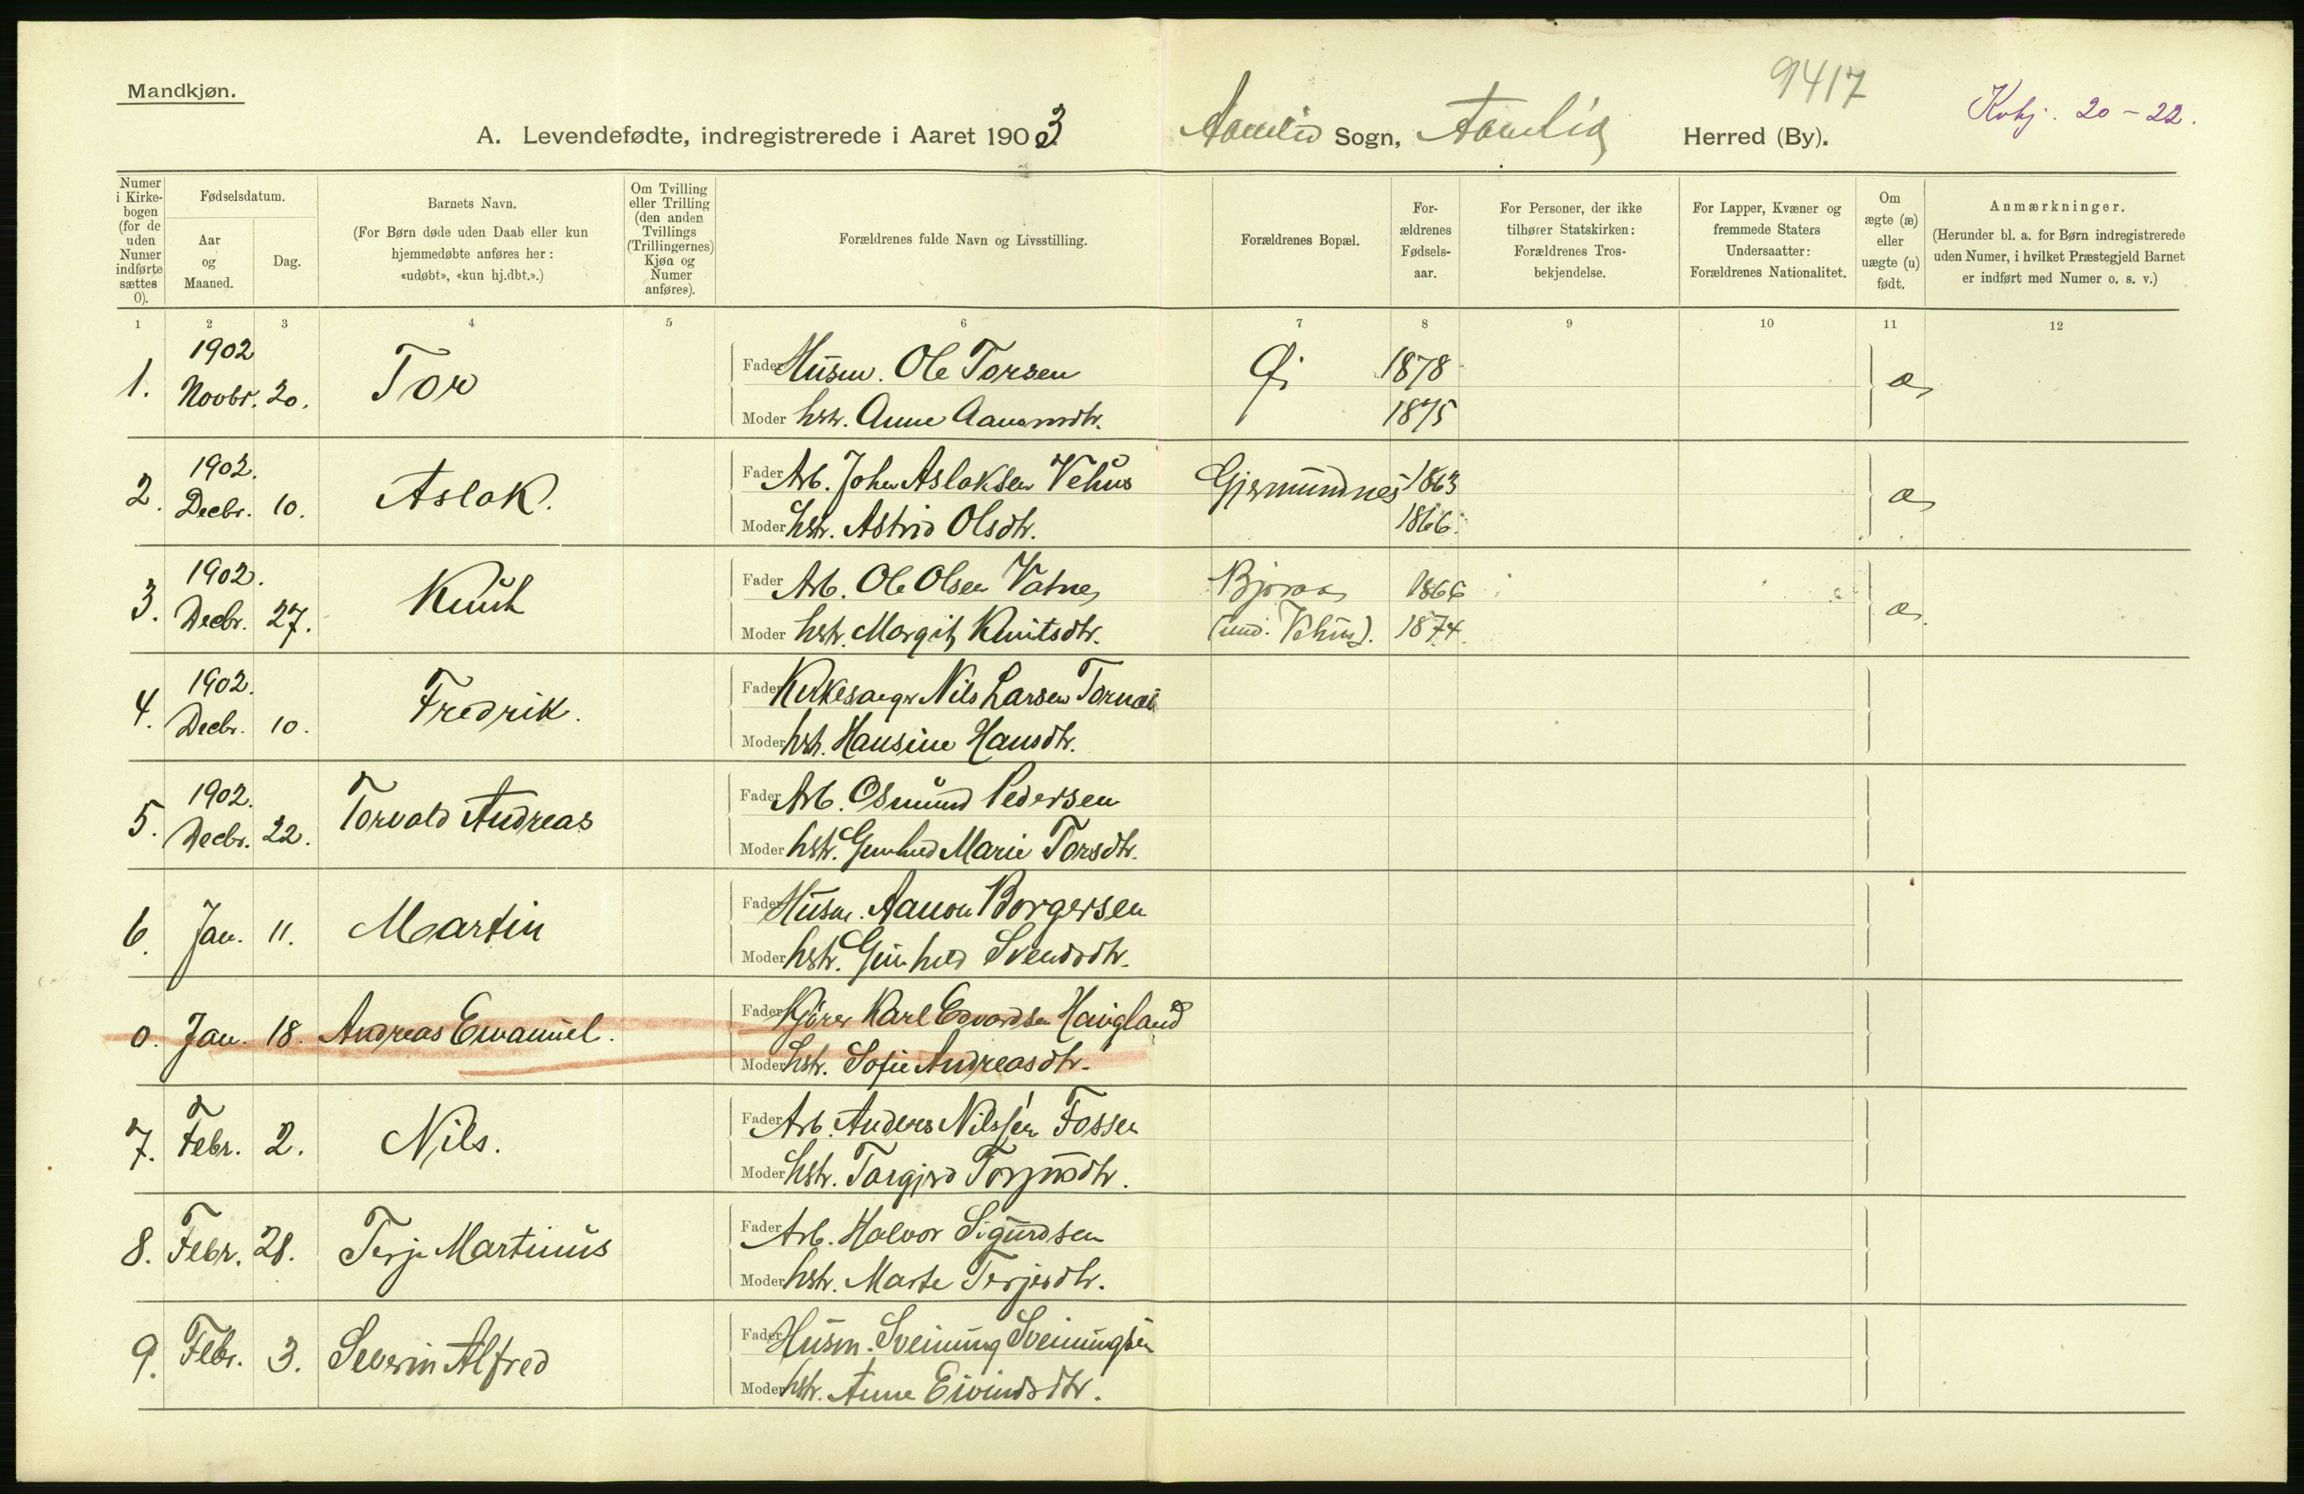 9417
Mandkjøn.
Kvhj. 20-22.
A. Levendefødte, indregistrerede i Aaret 1903 Aamlid Sogn, Aamlid Herred (By).
Numer i Kirkebogen (for de uden Numer indførte sættes 0).
Fødselsdatum.
Aar og Maaned.
Dag.
Barnets Navn.
(For Børn døde uden Daab eller kun
hjemmedøbte anføres her:
«udøbt», «kun hj.dbt.».)
Om Tvilling
eller Trilling
(den anden
Tvillings
(Trillingernes)
Kjøn og
Numer
anføres).
Forældrenes fulde Navn og Livsstilling.
Forældrenes Bopæl.
For-
ældrenes
Fødsels-
aar.
For Personer, der ikke
tilhører Statskirken:
Forældrenes Tros-
bekjendelse.
For Lapper, Kvæner og
fremmede Staters
Undersaatter:
Forældrenes Nationalitet.
Om
ægte (æ)
eller
uægte (u)
født.
Anmærkninger.
(Herunder bl. a. for Børn indregistrerede
uden Numer, i hvilket Præstegjeld Barnet
er indført med Numer o. s. v.)
1 2 3 4 5 6 7 8 9 10 11 12
1. 1902 Novbr. 20. Tor
Fader Husm. Ole Torsen Øi 1878 æ
Moder hstr. Anne Aanonsdtr. 1875
2. 1902. Decbr. 10. Aslak.
Fader Arb. John Aslaksen Vehus Gjermundnes 1863 æ
Moder hstr. Astrid Olsdtr. 1866.
3. 1902. Decbr. 27. Knut
Fader Arb. Ole Olsen Vatne Bjoraa 1866 æ.
Moder hstr. Margit Knutsdtr. (und. Vehus). 1874.
4. 1902. Decbr. 10. Fredrik.
Fader Kirkesanger Nils Larsen Tornæs
Moder hstr. Hansine Hansdtr.
5. 1902. Decbr. 22. Torvald Andreas
Fader Arb. Osmund Pedersen
Moder hstr. Gunhild Marie Torsdtr.
6. Jan. 11. Martin
Fader Husm. Aanon Borgersen
Moder hstr. Gunhild Svendsdtr.
0. Jan. 18. Andreas Emanuel.
Fader Kjører Karl Edvardsen Haugland
Moder hstr. Sofie Andreasdtr.
7. Febr. 2. Nils.
Fader Arb. Anders Nilssen Fossen
Moder hstr. Torgjerd Torjusdtr.
8. Febr. 28. Terje Martinius
Fader Arb. Halvor Sigurdsen
Moder hstr. Marte Terjesdtr.
9. Febr. 3. Severin Alfred
Fader Husm. Sveinung Sveinungsen
Moder hstr. Anne Eivindsdtr.